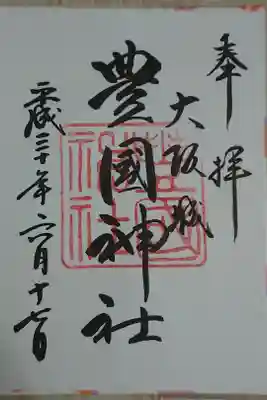 奉拝
大阪城
豊國神社
平成三十年六月十七日